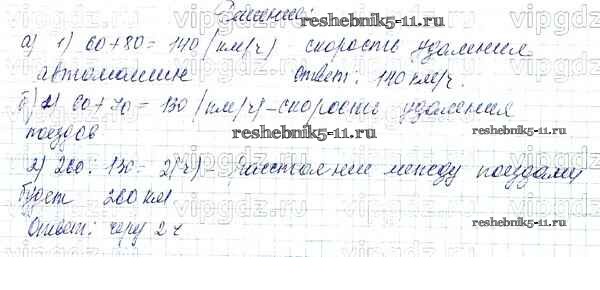 Решение:
reshebnik5-11.ru
а) 1) 60+80=140 (км/ч) - скорость удаления
автомашин Ответ: 140 км/ч.
reshebnik5-11.ru
б) 1) 60+70=130 (км/ч) - скорость удаления
поездов
reshebnik5-11.ru
2) 260:130=2(ч) - расстояние между поездами
будет 260 км.
reshebnik5-11.ru
Ответ: через 2 ч
vipgdz.ru